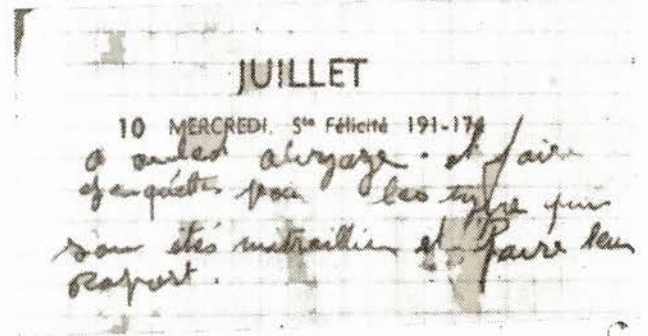 JUILLET
10 MERCREDI. Ste Félicité 191-174
a ouled et faire
enquête pou les type qui
son étés mitraillier et Faire leur
Raport.